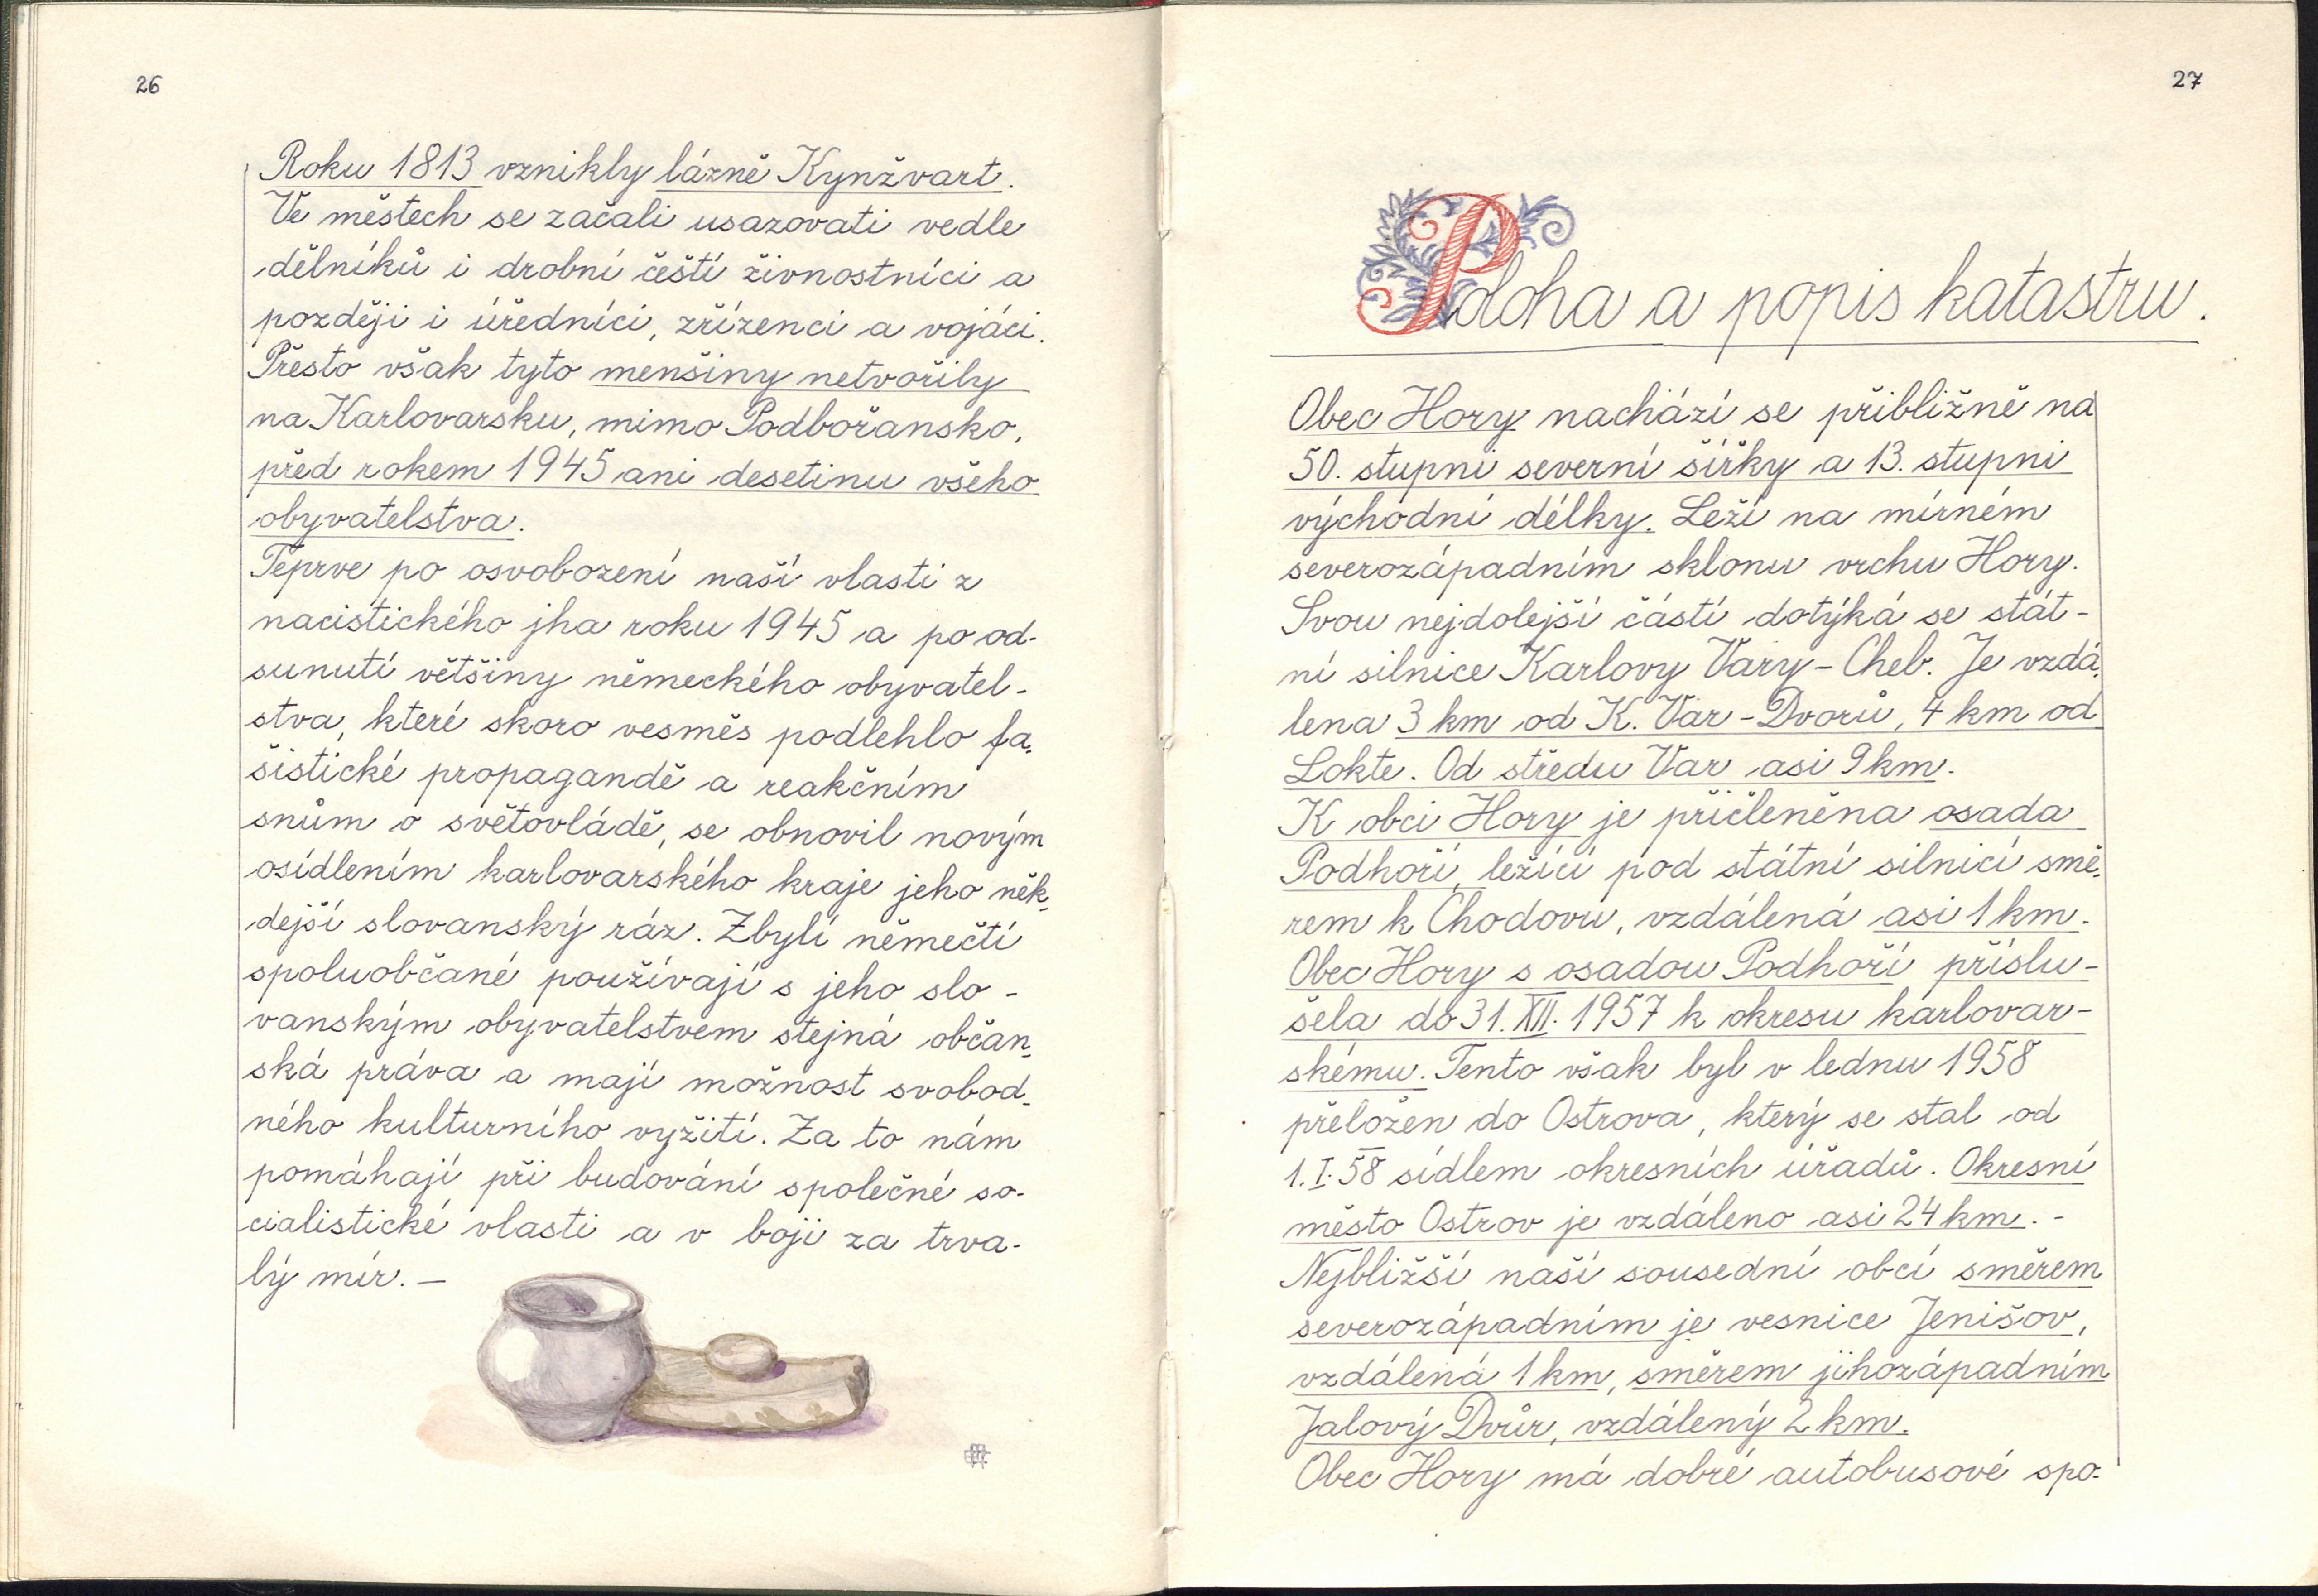 26
Roku 1813 vznikly lázně Kynžvart.
Ve městech se začali usazovati vedle
dělníků i drobní čeští živnostníci a
později i úředníci, zřízenci a vojáci.
Přesto však tyto menšiny netvořily
na Karlovarsku, mimo Podbořansko,
před rokem 1945 ani desetinu všeho
obyvatelstva.
Teprve po osvobození naší vlasti z
nacistického jha roku 1945 a po od-
sunutí většiny německého obyvatel-
stva, které skoro vesměs podlehlo fa-
šistické propagandě a reakčním
snům o světovládě, se obnovil novým
osídlením karlovarského kraje jeho něk-
dejší slovanský ráz. Zbylí němečtí
spoluobčané používají s jeho slo-
vanským obyvatelstvem stejná občan-
ská práva a mají možnost svobod-
ného kulturního vyžití. Za to nám
pomáhají při budování společné so-
cialistické vlasti a v boji za trva-
lý mír. —
27
Poloha a popis katastru.
Obec Hory nachází se přibližně na
50. stupni severní šířky a 13. stupni
východní délky. Leží na mírném
severozápadním sklonu vrchu Hory.
Svou nejdolejší částí dotýká se stát-
ní silnice Karlovy Vary - Cheb. Je vzdá-
lena 3 km od K. Var - Dvorů, 4 km od
Lokte. Od středu Var asi 9 km.
K obci Hory je přičleněna osada
Podhoří, ležící pod státní silnicí smě-
rem k Chodovu, vzdálená asi 1 km.
Obec Hory s osadou Podhoří příslu-
šela do 31. XII. 1957 k okresu karlovar-
skému. Tento však byl v lednu 1958
přeložen do Ostrova, který se stal od
1. I. 58 sídlem okresních úřadů. Okresní
město Ostrov je vzdáleno asi 24 km. -
Nejbližší naší sousední obcí směrem
severozápadním je vesnice Jenišov,
vzdálená 1 km, směrem jihozápadním
Jalový Dvůr, vzdálený 2 km.
Obec Hory má dobré autobusové spo-